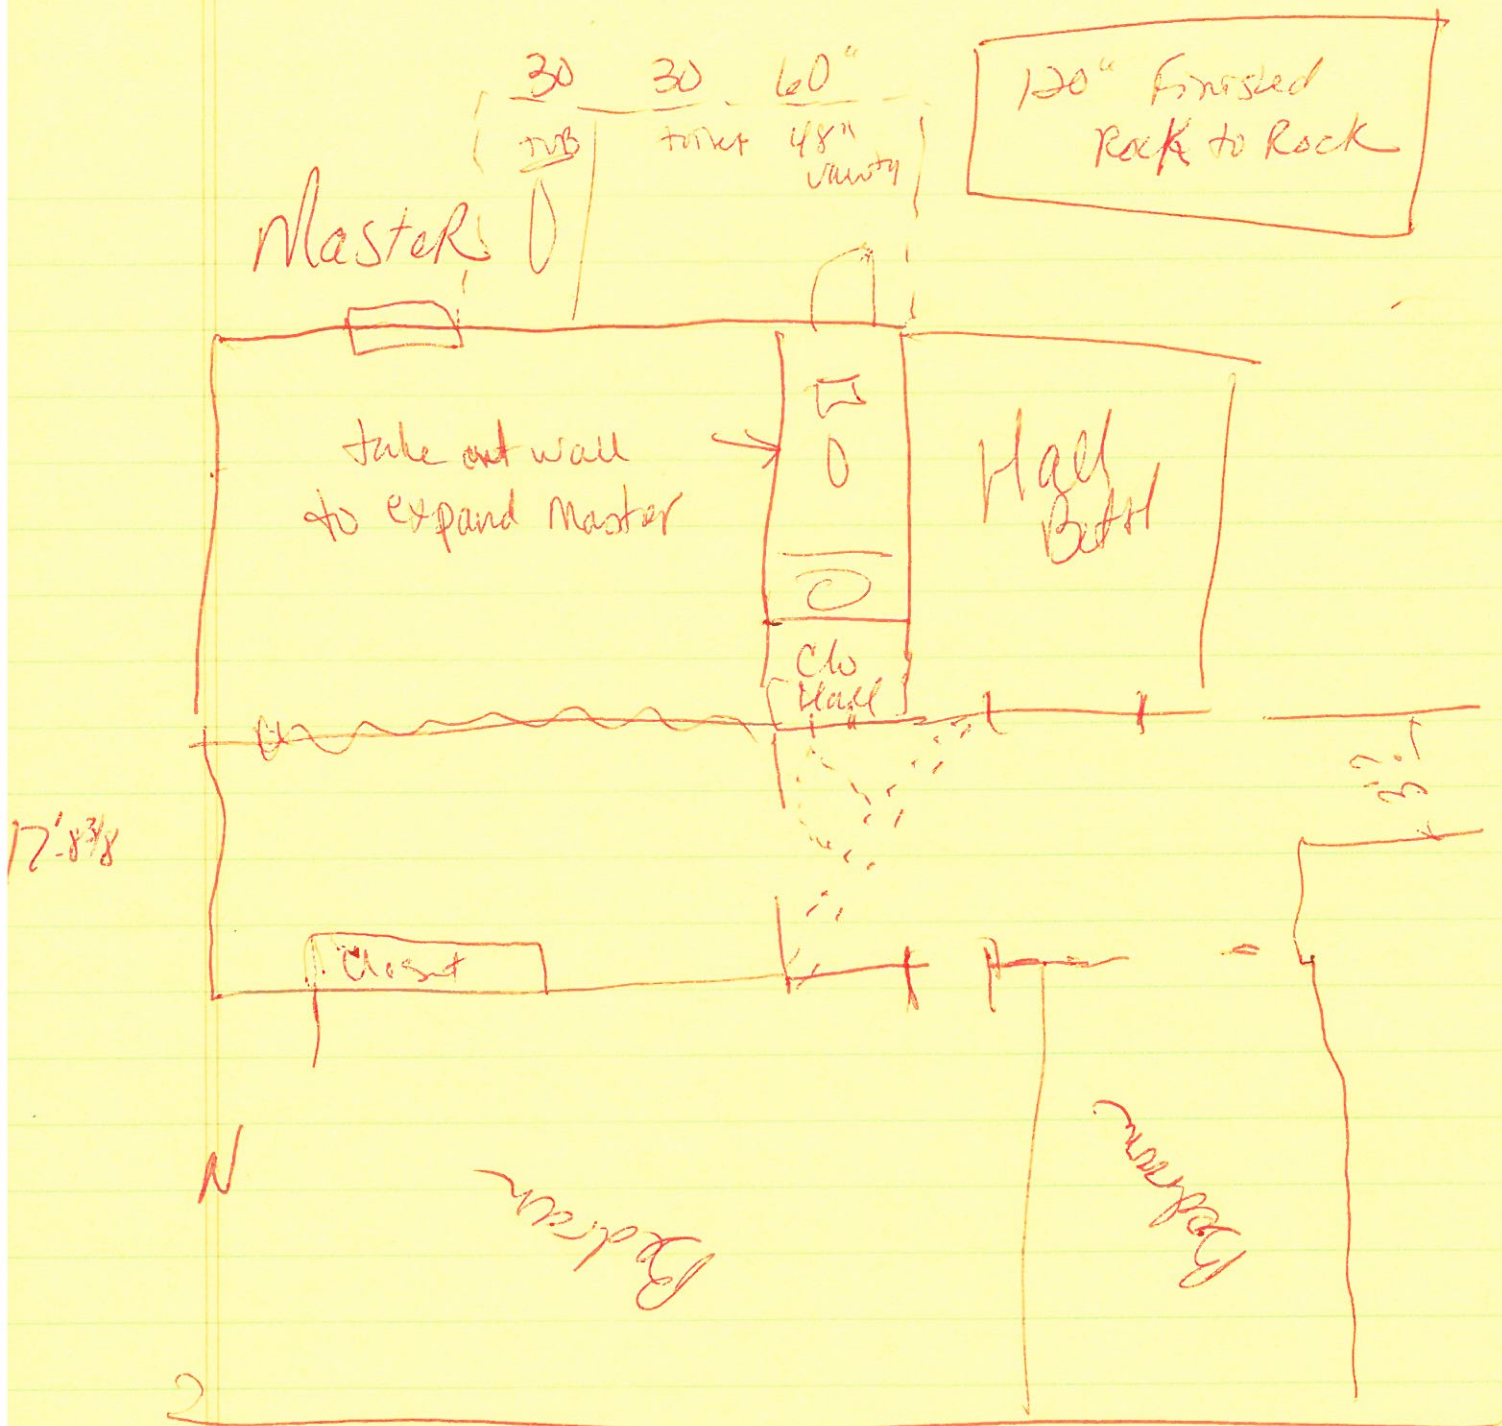 30 30 60"
tub toilet 48"
vanity
120" Finished
Rock to Rock
Master
take out wall
to expand Master
Hall
Bath
Clo
Hall
3'2"
17'-8 3/8
Closet
N
Bedroom
Bedroom
2